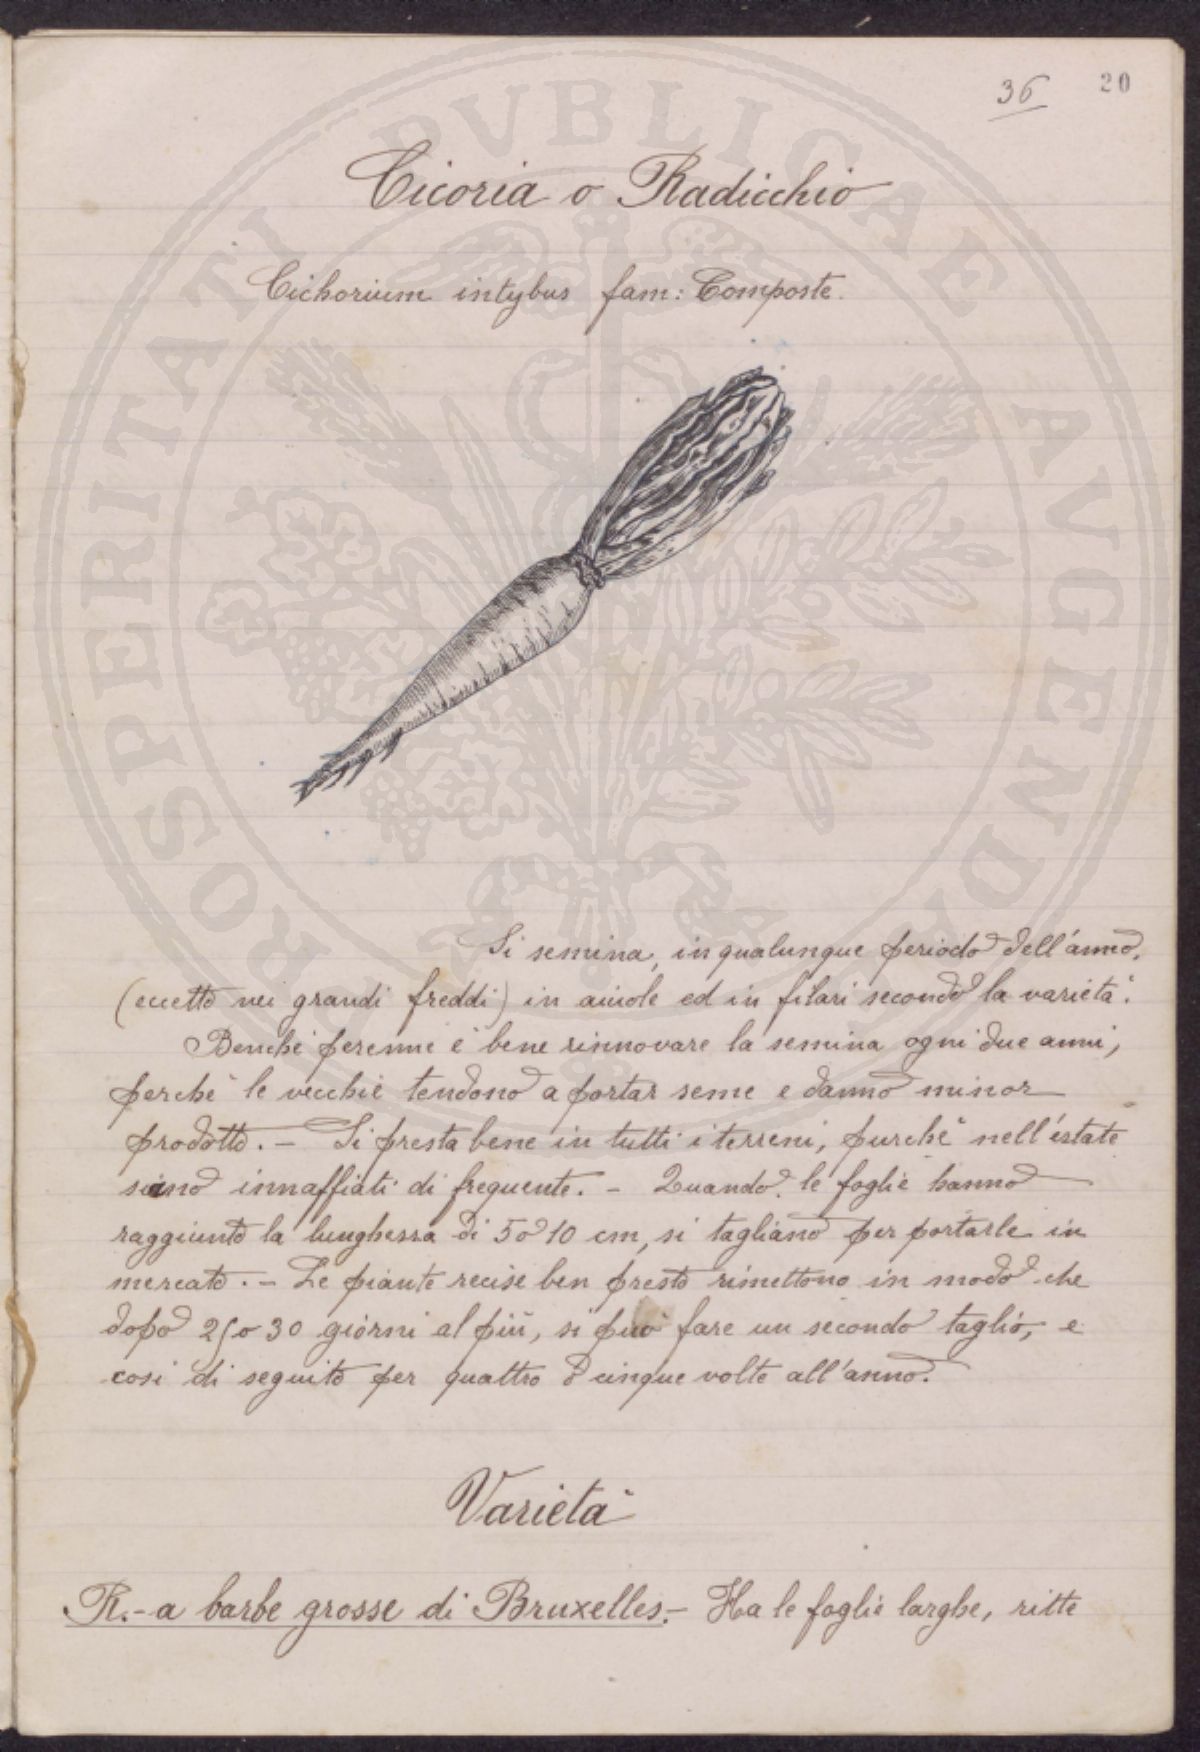 36 20
Cicoria o Radicchio
Cichorium intybus fam: Composte.
Si semina, in qualunque periodo dell'anno,
(eccetto nei grandi freddi) in aiuole ed in filari secondo la varietà.
Benchè perenne è bene rinnovare la semina ogni due anni,
perchè le vecchie tendono a portar seme e danno minor
prodotto. – Si presta bene in tutti i terreni, purchè nell'estate
siano innaffiati di frequente. – Quando le foglie hanno
raggiunto la lunghezza di 5 o 10 cm, si tagliano per portarle in
mercato. – Le piante recise ben presto rimettono in modo che
dopo 25 o 30 giorni al più, si può fare un secondo taglio, e
così di seguito per quattro o cinque volte all'anno.
Varietà
R.- a barbe grosse di Bruxelles.– Ha le foglie larghe, ritte
PROSPERITATI PVBLICAE AVGENDAE